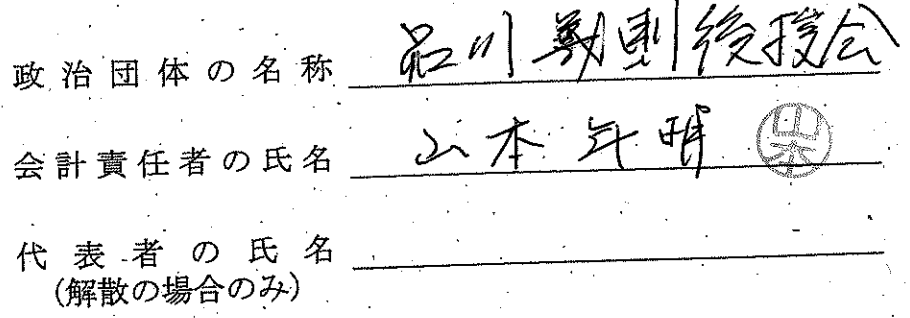 政治団体の名称 品川義則後援会
会計責任者の氏名 山本年明 山本
代表者の氏名
(解散の場合のみ)